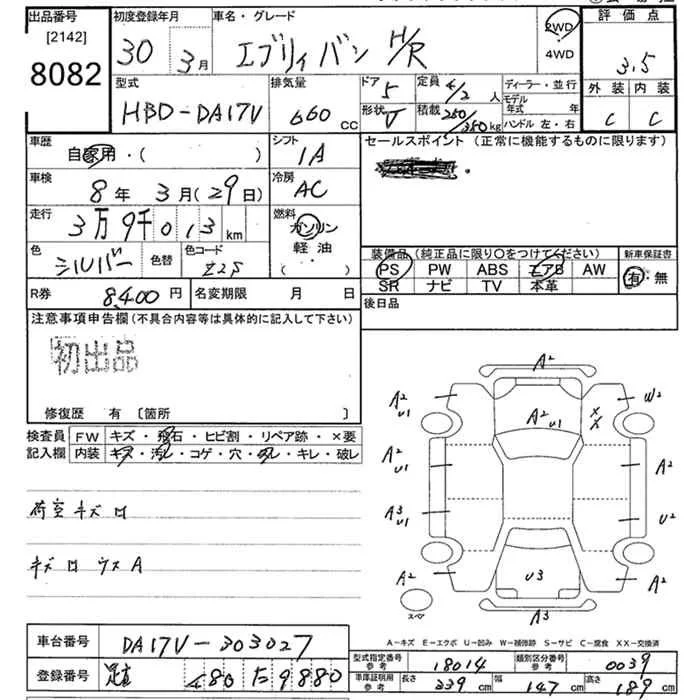 出品番号
[2142]
8082
初度登録年月
30年 3月
車名・グレード
エブリィバン H/R
2WD
4WD
評価点
3.5
型式
HBD-DA17V
排気量
660 CC
ドア 5
形状 V
定員 4/2 人
積載 250/350kg
ディーラー・並行
モデル年式 年
ハンドル 左・右
外装 内装
C C
車歴
自家用・( )
シフト
1A
セールスポイント(正常に機能するものに限ります)
車検
8年 3月(29日)
冷房
AC
走行
3万9千013 km
燃料
ガソリン
軽油
( )
色
シルバー
色替
色コード
Z2S
装備品(純正品に限り〇をつけてください)
新車保証書
PS PW ABS エアB AW
SR ナビ TV 本革
有・無
R券 8,400円 名変期限 月 日
後日品
注意事項申告欄(不具合内容等は具体的に記入して下さい)
初出品
修復歴 有 〔箇所 〕
検査員 FW キズ・飛石・ヒビ割・リペア跡・×要
記入欄 内装 キズ・汚レ・コゲ・穴・ヌレ・キレ・破レ
荷室キズロ
キズロ ウスA
A2
A2 U1
A2 U1
W2
XX
A2 U1
A2
A3 U1
U2
A2
U3
A2
スペア
A3
A-キズ E-エクボ U-凹み W-補修跡 S-サビ C-腐食 XX-交換済
車台番号 DA17V-303027
登録番号 480 た 9880
型式指定番号 参考 18014 類別区分番号 参考 0039
車庫証明用 参考 長さ 339 cm 幅 147 cm 高さ 189 cm